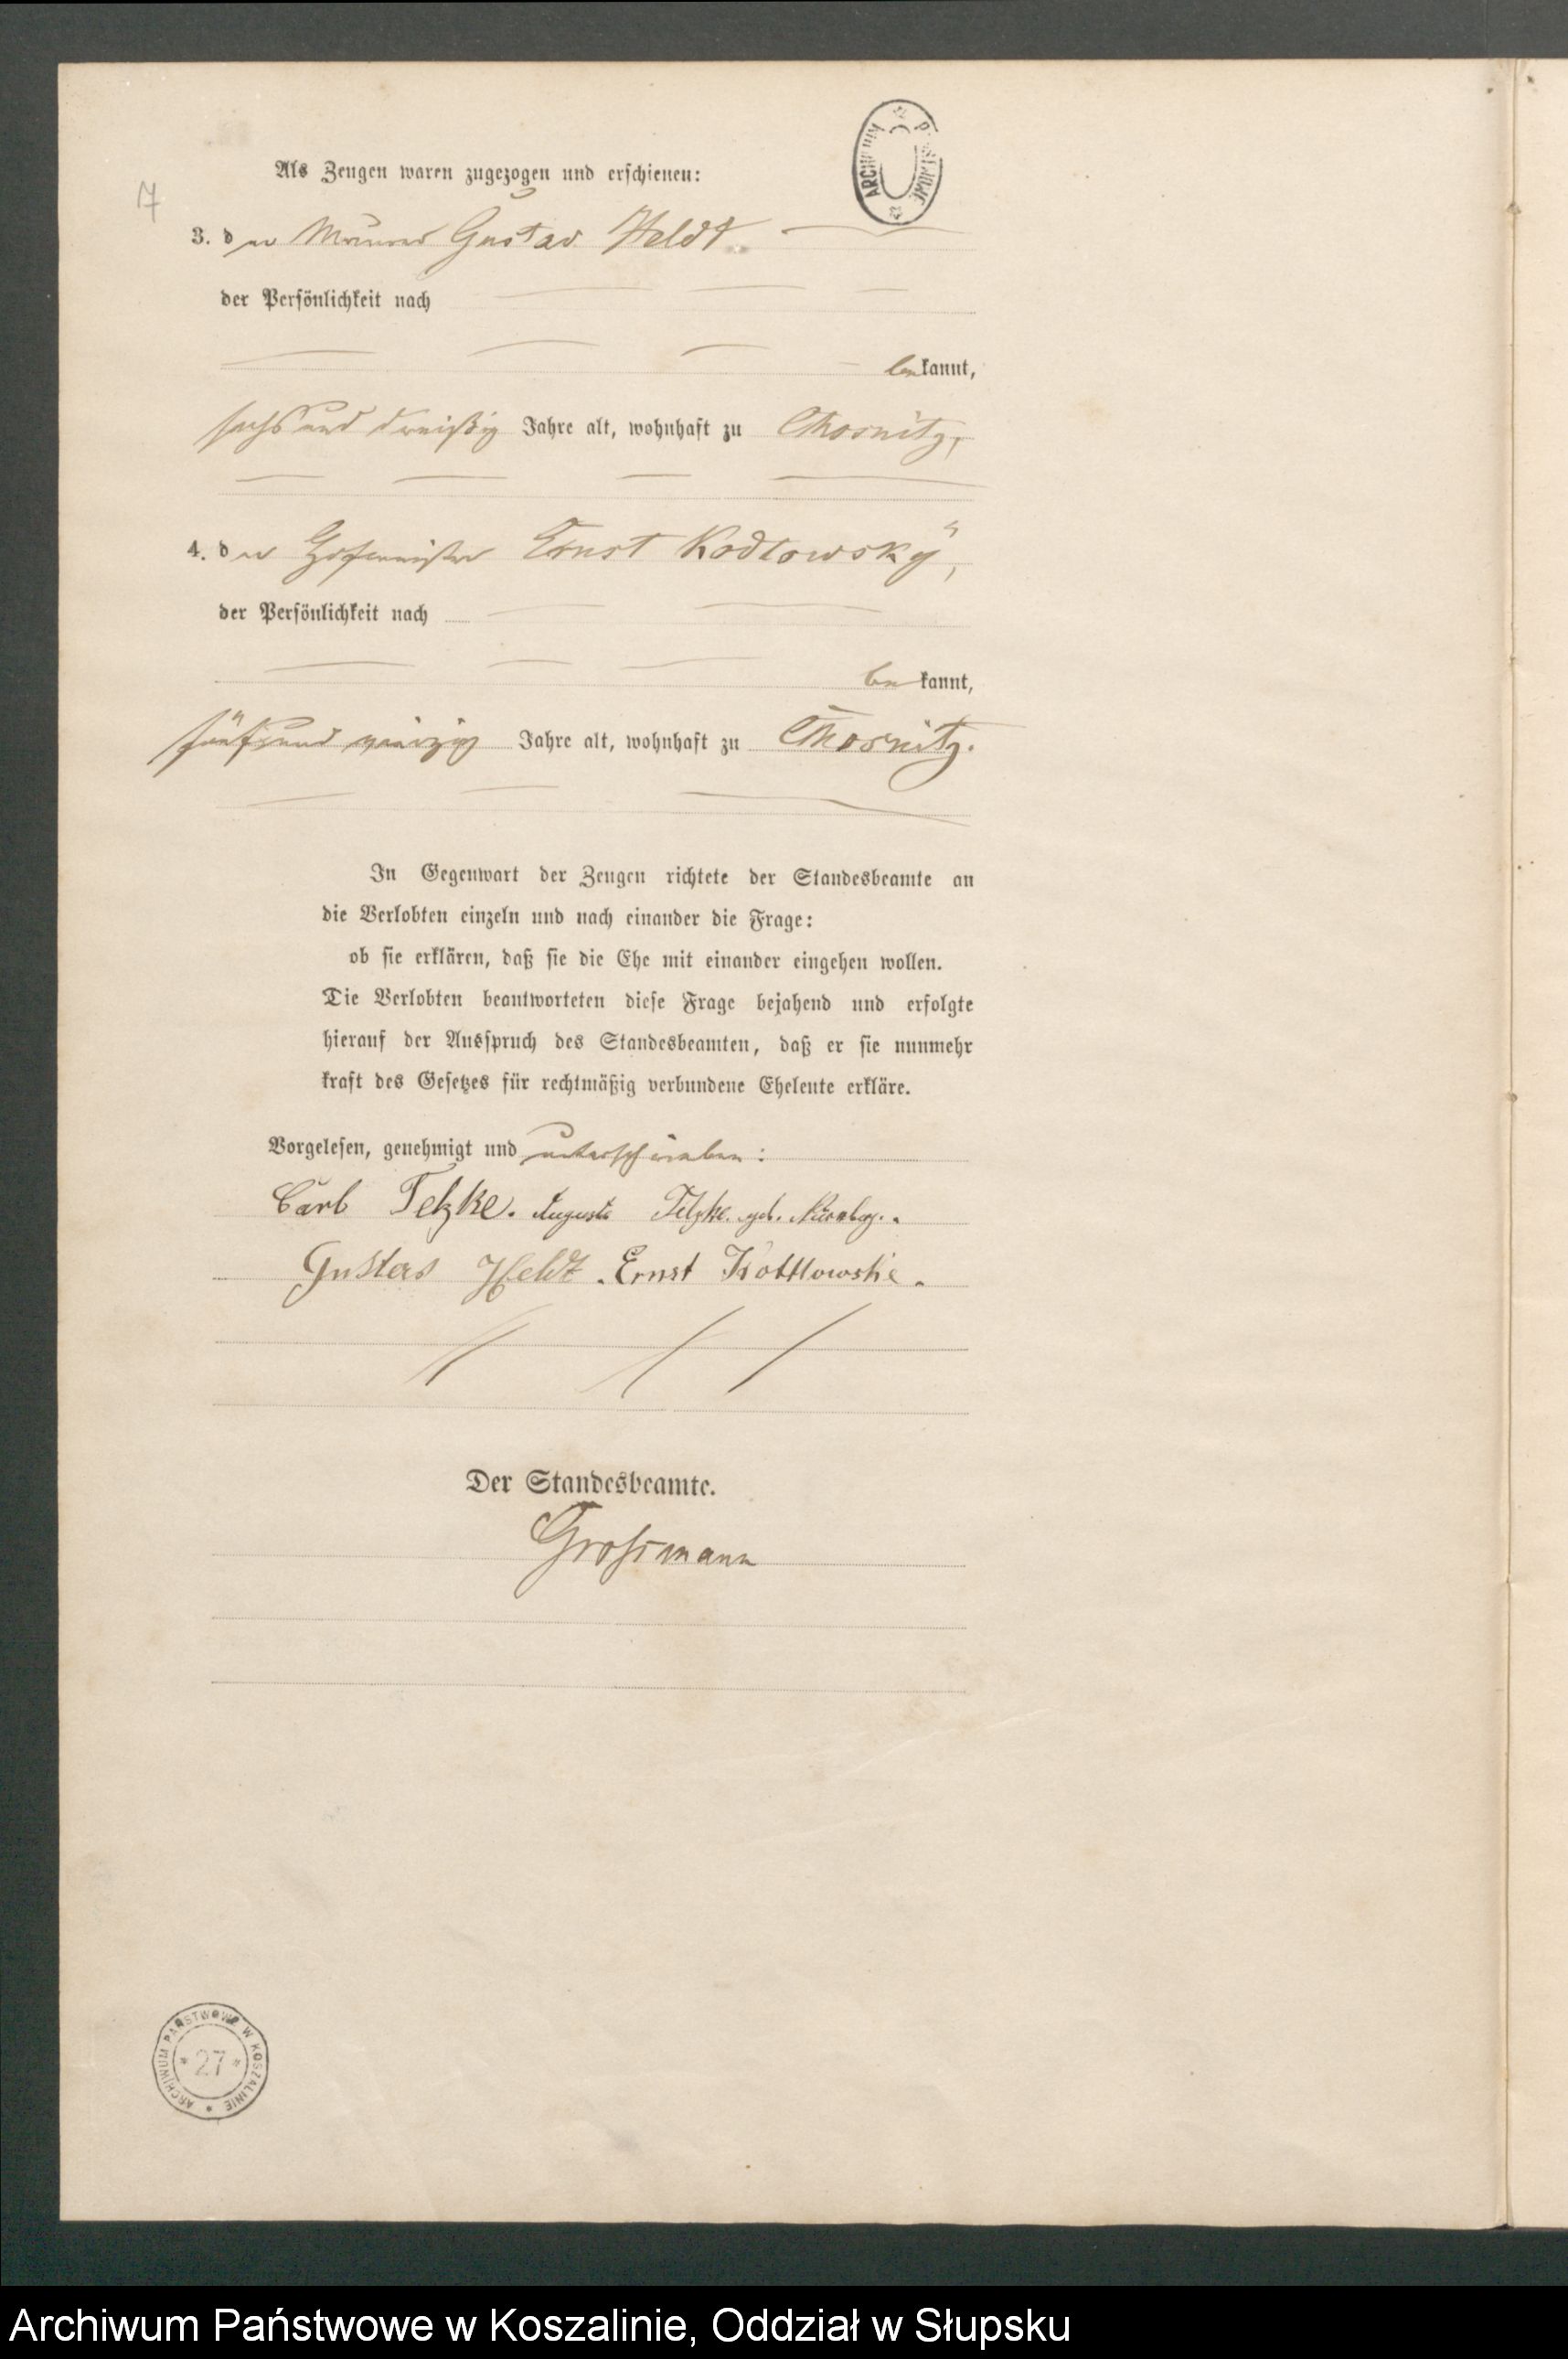 Als Zeugen waren zugezogen und erschienen:
7
3. der Maurer Gustav Heldt.
der Persönlichkeit nach
bekannt,
sechs und dreißig Jahre alt, wohnhaft zu
4. der Hofmeister Ernst Kodlowsky,
der Persönlichkeit nach
bekannt,
fünf und vierzig Jahre alt, wohnhaft zu
In Gegenwart der Zeugen richtete der Standesbeamte an
die Verlobten einzeln und nach einander die Frage:
ob sie erklären, daß sie die Ehe mit einander eingehen wollen.
Die Verlobten beantworteten diese Frage bejahend und erfolgte
hierauf der Ausspruch des Standesbeamten, daß er sie nunmehr
kraft des Gesetzes für rechtmäßig verbundene Eheleute erkläre.
Vorgelesen, genehmigt und unterschrieben:
Carl Tetzke. Auguste Tetzke. geb.
Gustav Heldt. Ernst Kottlowske.
Der Standesbeamte.
Grossmann
ARCHIWUM PAŃSTWOWE W KOSZALINIE * 27 *
Archiwum Państwowe w Koszalinie, Oddział w Słupsku